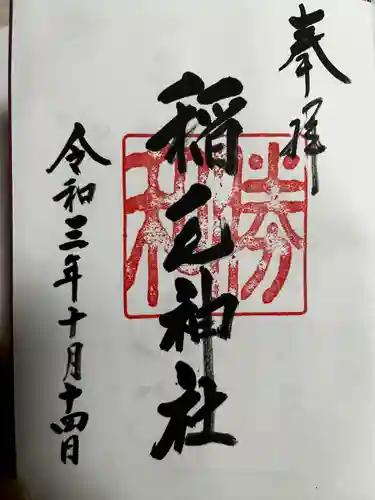 奉拝
稲毛神社
勝利
令和三年十月十四日